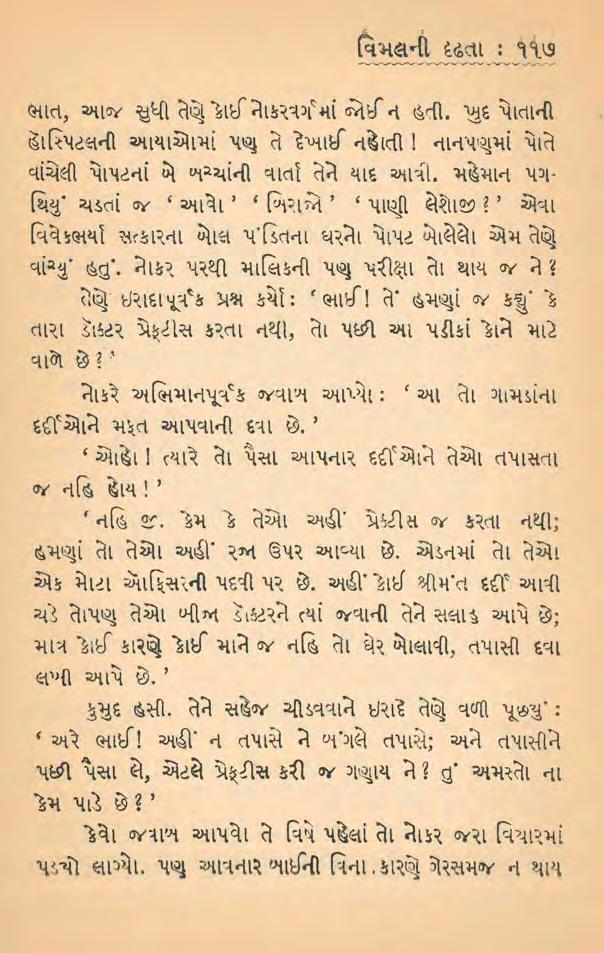 વિમલની દૃઢતા : ૧૧૭
ભાત, આજ સુધી તેણે કોઈ નોકરવર્ગમાં જોઈ ન હતી. ખુદ પોતાની
હૉસ્પિટલની આયાઓમાં પણ તે દેખાઈ નહોતી ! નાનપણમાં પોતે
વાંચેલી પોપટનાં બે બચ્ચાંની વાર્તા તેને યાદ આવી. મહેમાન પગ-
થિયું ચડતાં જ ‘ આવો ’ ‘ બિરાજો ’ ‘ પાણી લેશોજી ? ’ એવા
વિવેકભર્યા સત્કારના બોલ પંડિતના ઘરનો પોપટ બોલેલો એમ તેણે
વાંચ્યું હતું. નોકર પરથી માલિકની પણ પરીક્ષા તો થાય જ ને ?
તેણે ઇરાદાપૂર્વક પ્રશ્ન કર્યો : ‘ ભાઈ ! તેં હમણાં જ કહ્યું કે
તારા ડૉક્ટર પ્રેક્ટીસ કરતા નથી, તો પછી આ પડીકાં કોને માટે
વાળે છે ? ’
નોકરે અભિમાનપૂર્વક જવાબ આપ્યો : ‘ આ તો ગામડાંના
દર્દીઓને મફત આપવાની દવા છે. ’
‘ ઓહો ! ત્યારે તો પૈસા આપનાર દર્દીઓને તેઓ તપાસતા
જ નહિ હોય ! ’
‘ નહિ જી. કેમ કે તેઓ અહીં પ્રેક્ટીસ જ કરતા નથી;
હમણાં તો તેઓ અહીં રજા ઉપર આવ્યા છે. એડનમાં તો તેઓ
એક મોટા ઑફિસરની પદવી પર છે. અહીં કોઈ શ્રીમંત દર્દી આવી
ચડે તોપણ તેઓ બીજા ડૉક્ટરને ત્યાં જવાની તેને સલાહ આપે છે;
માત્ર કોઈ કારણે કોઈ માને જ નહિ તો ઘેર બોલાવી, તપાસી દવા
લખી આપે છે. ’
કુમુદ હસી. તેને સહેજ ચીડવવાને ઇરાદે તેણે વળી પૂછ્યું :
‘ અરે ભાઈ ! અહીં ન તપાસે ને બંગલે તપાસે; અને તપાસીને
પછી પૈસા લે, એટલે પ્રેક્ટીસ કરી જ ગણાય ને ? તું અમસ્તો ના
કેમ પાડે છે ? ’
કેવો જવાબ આપવો તે વિષે પહેલાં તો નોકર જરા વિચારમાં
પડ્યો લાગ્યો. પણ આવનાર બાઈની વિના કારણે ગેરસમજ ન થાય